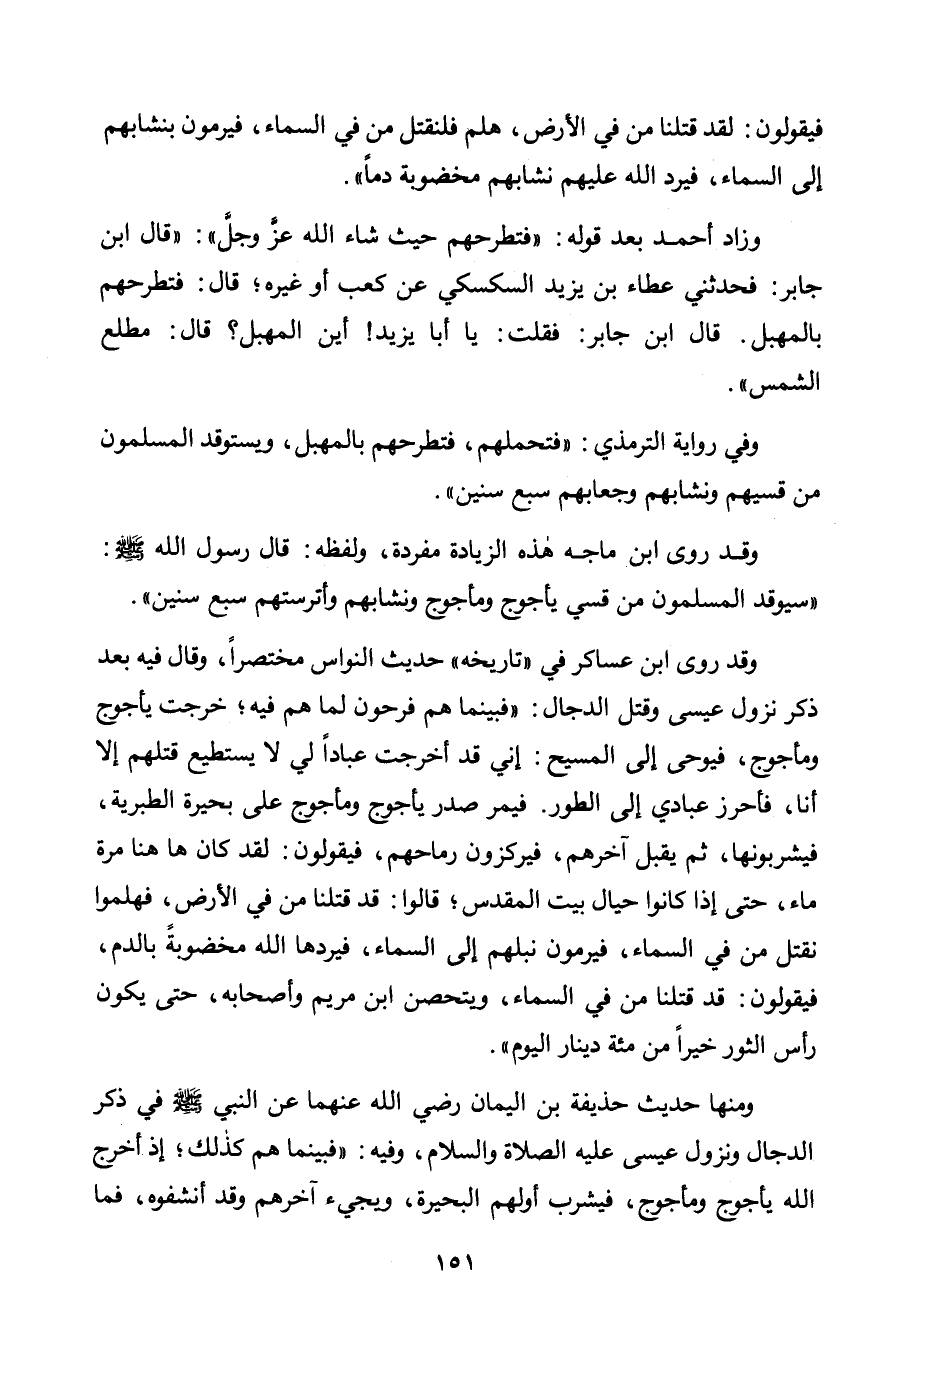 فيقولون: لقد قتلنا من في الأرض، هلم فلنقتل من في السماء، فيرمون بنشابهم
إلى السماء، فيرد الله عليهم نشابهم مخضوبة دماً».
وزاد أحمـد بعد قوله: «فتطرحهم حيث شاء الله عزَّ وجلَّ»: «قال ابن
جابر: فحدثني عطاء بن يزيد السكسكي عن كعب أو غيره؛ قال: فتطرحهم
بالمهبل. قال ابن جابر: فقلت: يا أبا يزيد! أين المهبل؟ قال: مطلع
الشمس».
وفي رواية الترمذي: «فتحملهم، فتطرحهم بالمهبل، ويستوقد المسلمون
من قسيهم ونشابهم وجعابهم سبع سنين».
وقـد روى ابن ماجـه هٰذه الزيادة مفردة، ولفظه: قال رسول الله ﷺ:
«سيوقد المسلمون من قسي يأجوج ومأجوج ونشابهم وأترستهم سبع سنين».
وقد روى ابن عساكر في «تاريخه» حديث النواس مختصراً، وقال فيه بعد
ذكر نزول عيسى وقتل الدجال: «فبينما هم فرحون لما هم فيه؛ خرجت يأجوج
ومأجوج، فيوحى إلى المسيح: إني قد أخرجت عباداً لي لا يستطيع قتلهم إلا
أنا، فأحرز عبادي إلى الطور. فيمر صدر يأجوج ومأجوج على بحيرة الطبرية،
فيشربونها، ثم يقبل آخرهم، فيركزون رماحهم، فيقولون: لقد كان ها هنا مرة
ماء، حتى إذا كانوا حيال بيت المقدس؛ قالوا: قد قتلنا من في الأرض، فهلموا
نقتل من في السماء، فيرمون نبلهم إلى السماء، فيردها الله مخضوبةً بالدم،
فيقولون: قد قتلنا من في السماء، ويتحصن ابن مريم وأصحابه، حتى يكون
رأس الثور خيراً من مئة دينار اليوم».
ومنها حديث حذيفة بن اليمان رضي الله عنهما عن النبي ﷺ في ذكر
الدجال ونزول عيسى عليه الصلاة والسلام، وفيه: «فبينما هم كذٰلك؛ إذ أخرج
الله يأجوج ومأجوج، فيشرب أولهم البحيرة، ويجيء آخرهم وقد أنشفوه، فما
١٥١